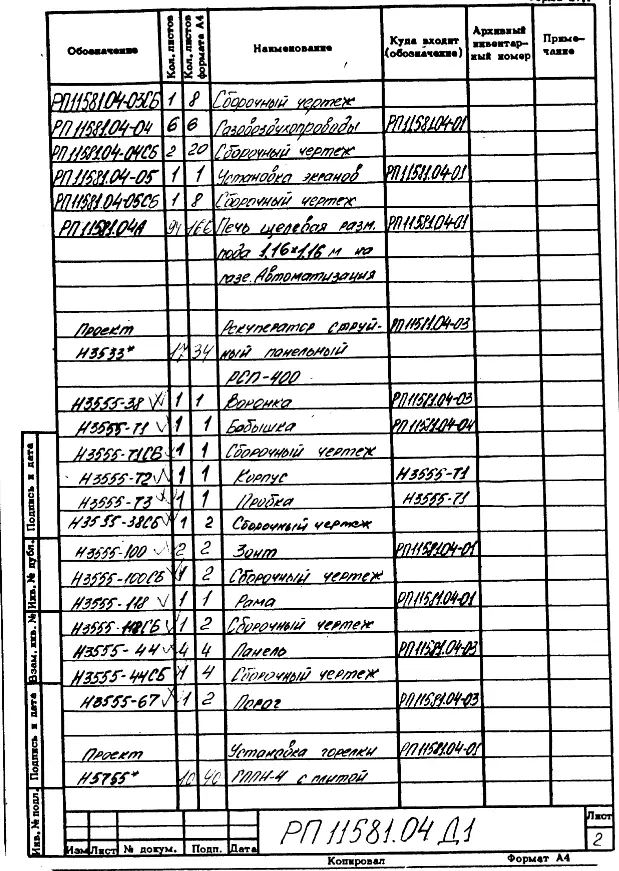 Обозначение Кол. листов Кол. листов формата А4 Наименование Куда входит (обозначение) Архивный инвентарный номер Примечание
РП11581.04-03СБ 1 8 Сборочный чертеж
РП11581.04-04 6 6 Газовоздухопроводы РП11581.04-01
РП11581.04-04СБ 2 20 Сборочный чертеж
РП11581.04-05 1 1 Установка экранов РП11581.04-01
РП11581.04-05СБ 1 8 Сборочный чертеж
РП11581.04А 94 166 Печь щелевая разм. РП11581.04-01
пода 1,16×1,16 м на
газе. Автоматизация
Проект Рекуператор струй- РП11581.04-03
Н3533* 17 34 ный панельный
РСП-400
Н3555-38 √ 1 1 Воронка РП11581.04-03
Н3555-Т1 √ 1 1 Бобышка РП11581.04-04
Н3555-Т1СБ √ 1 1 Сборочный чертеж
Н3555-Т2 √ 1 1 Корпус Н3555-Т1
Н3555-Т3 √ 1 1 Пробка Н3555-Т1
Н3555-38СБ √ 1 2 Сборочный чертеж
Н3555-100 √ 2 2 Зонт РП11581.04-01
Н3555-100СБ √ 1 2 Сборочный чертеж
Н3555-118 √ 1 1 Рама РП11581.04-01
Н3555-118СБ √ 1 2 Сборочный чертеж
Н3555-44 √ 4 4 Панель РП11581.04-03
Н3555-44СБ √ 1 4 Сборочный чертеж
Н3555-67 √ 1 2 Порог РП11581.04-03
Проект Установка горелки РП11581.04-01
Н5755* 10 40 ГППН-4 с плитой
Инв. № подл. Подпись и дата Взам. инв. № Инв. № дубл. Подпись и дата
РП11581.04 Д1
Лист
2
Изм Лист № докум. Подп. Дата
Копировал Формат А4